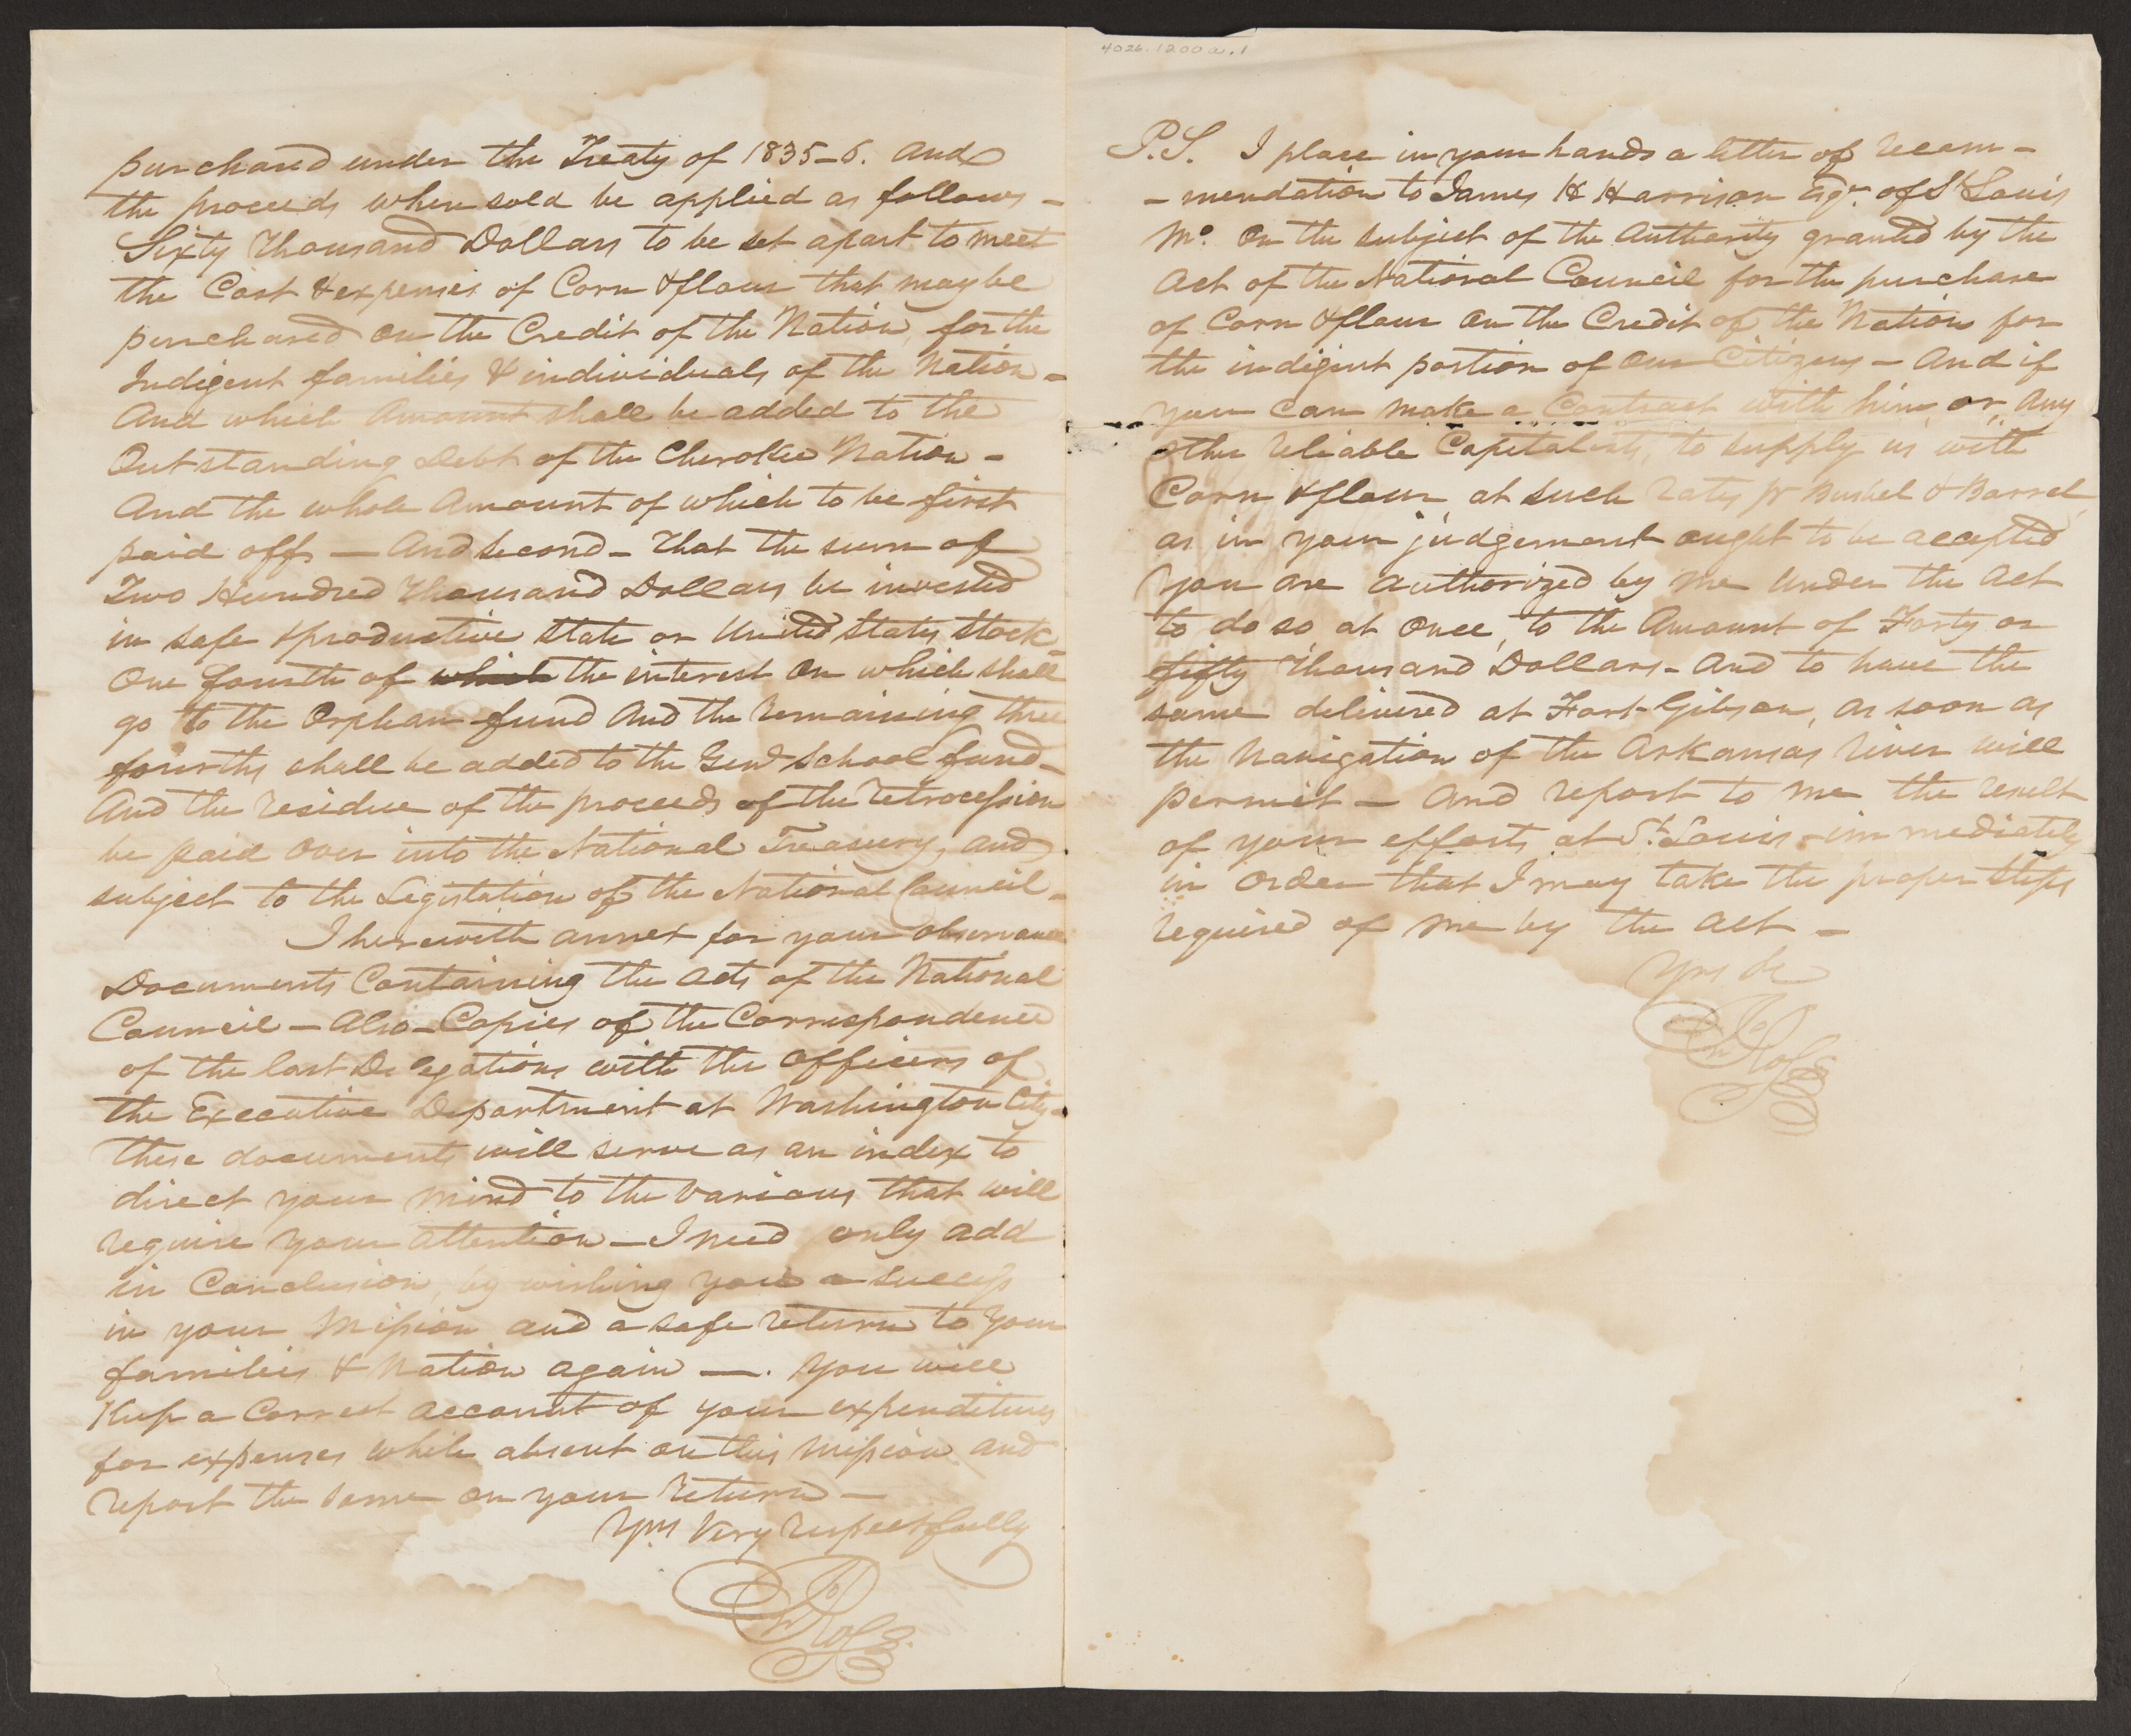 purchased under the Treaty of 1835-6. and
the proceeds when sold be applied as follows -
Sixty Thousand Dollars to be set apart to meet
the Cost & expenses of Corn & flour that may be
purchased on the Credit of the Nation, for the
Indigent families & individuals of the Nation -
And which Amount shall be added to the
Outstanding Debt of the Cherokee Nation -
And the whole Amount of which to be first
paid off - And Second - That the sum of
Two Hundred Thousand Dollars be invested
in safe & productive State or United States Stock -
One fourth of which the interest on which shall
go to the Orphan fund And the remaining three
fourths shall be added to the Genl School fund -
And the residue of the proceeds of the retrocession
be paid over into the National Treasury, and
subject to the Legislation of the National Council -
I herewith annex for your observance
Documents Containing the Acts of the National
Council - Also - Copies of the Correspondence
of the last Delegations with the Officers of
the Executive Department at Washington City -
these documents will serve as an index to
direct your mind to the various that will
require your attention - I need only add
in Conclusion, by wishing you a success
in your Mission and a safe return to your
families & Nation again - . You will
Keep a Correct account of your expenditures
for expenses while absent on this Mission and
report the same on your return -
Yrs Very respectfully
Jno Ross
4026.1200a.1
P.S. I place in your hands a letter of recom -
- mendation to James H Harrison Esqr. of St Louis
Mo. On the subject of the Authority granted by the
Act of the National Council for the purchase
of Corn & flour on the Credit of the Nation for
the indigent portion of our Citizens - And if
you can make a Contract with him, or, any
other reliable Capitalists, to supply us with
Corn & flour, at such rates pr Bushel & Barrel,
as in your judgement ought to be accepted
You are authorized by me under the Act
to do so, at once, to the Amount of Forty or
fifty Thousand Dollars - And to have the
same delivered at Fort Gibson, as soon as
the Navigation of the Arkansas River will
permit - And report to me the result
of your efforts at St. Louis - immediately
in order that I may take the proper steps
required of me by the Act -
Yrs &c
Jno Ross